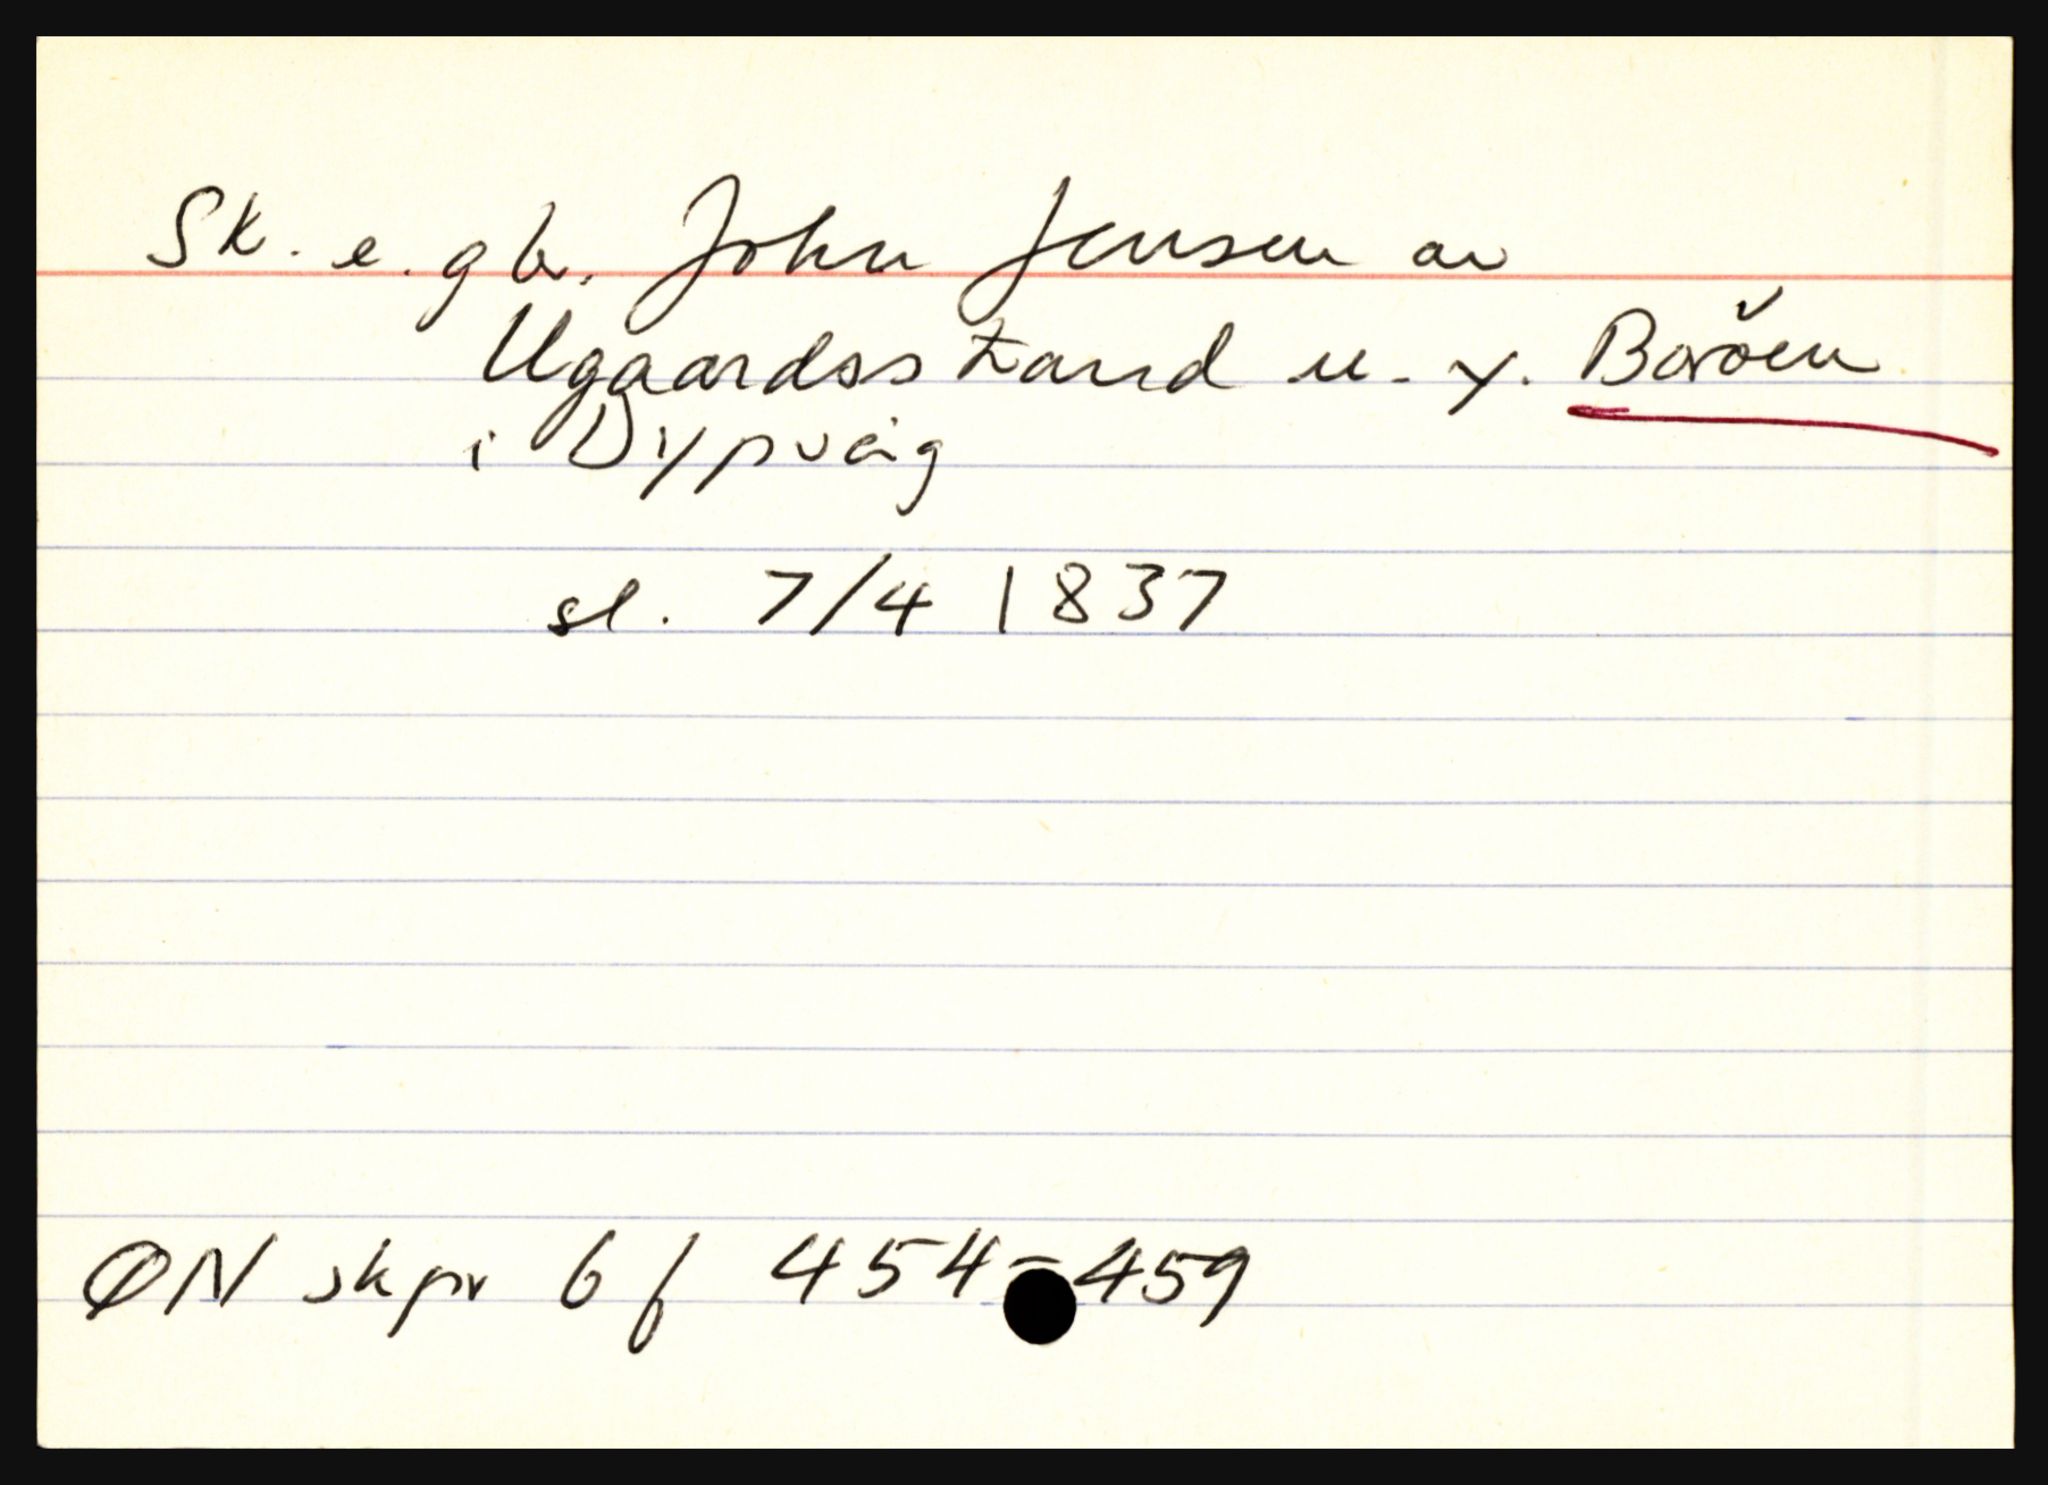 Sk. e. gb. John Jensen av
Ugaardsstrand u. y. Boröen
i Dypvåg
sl. 7/4 1837
ØN skpr 6 f 454-459